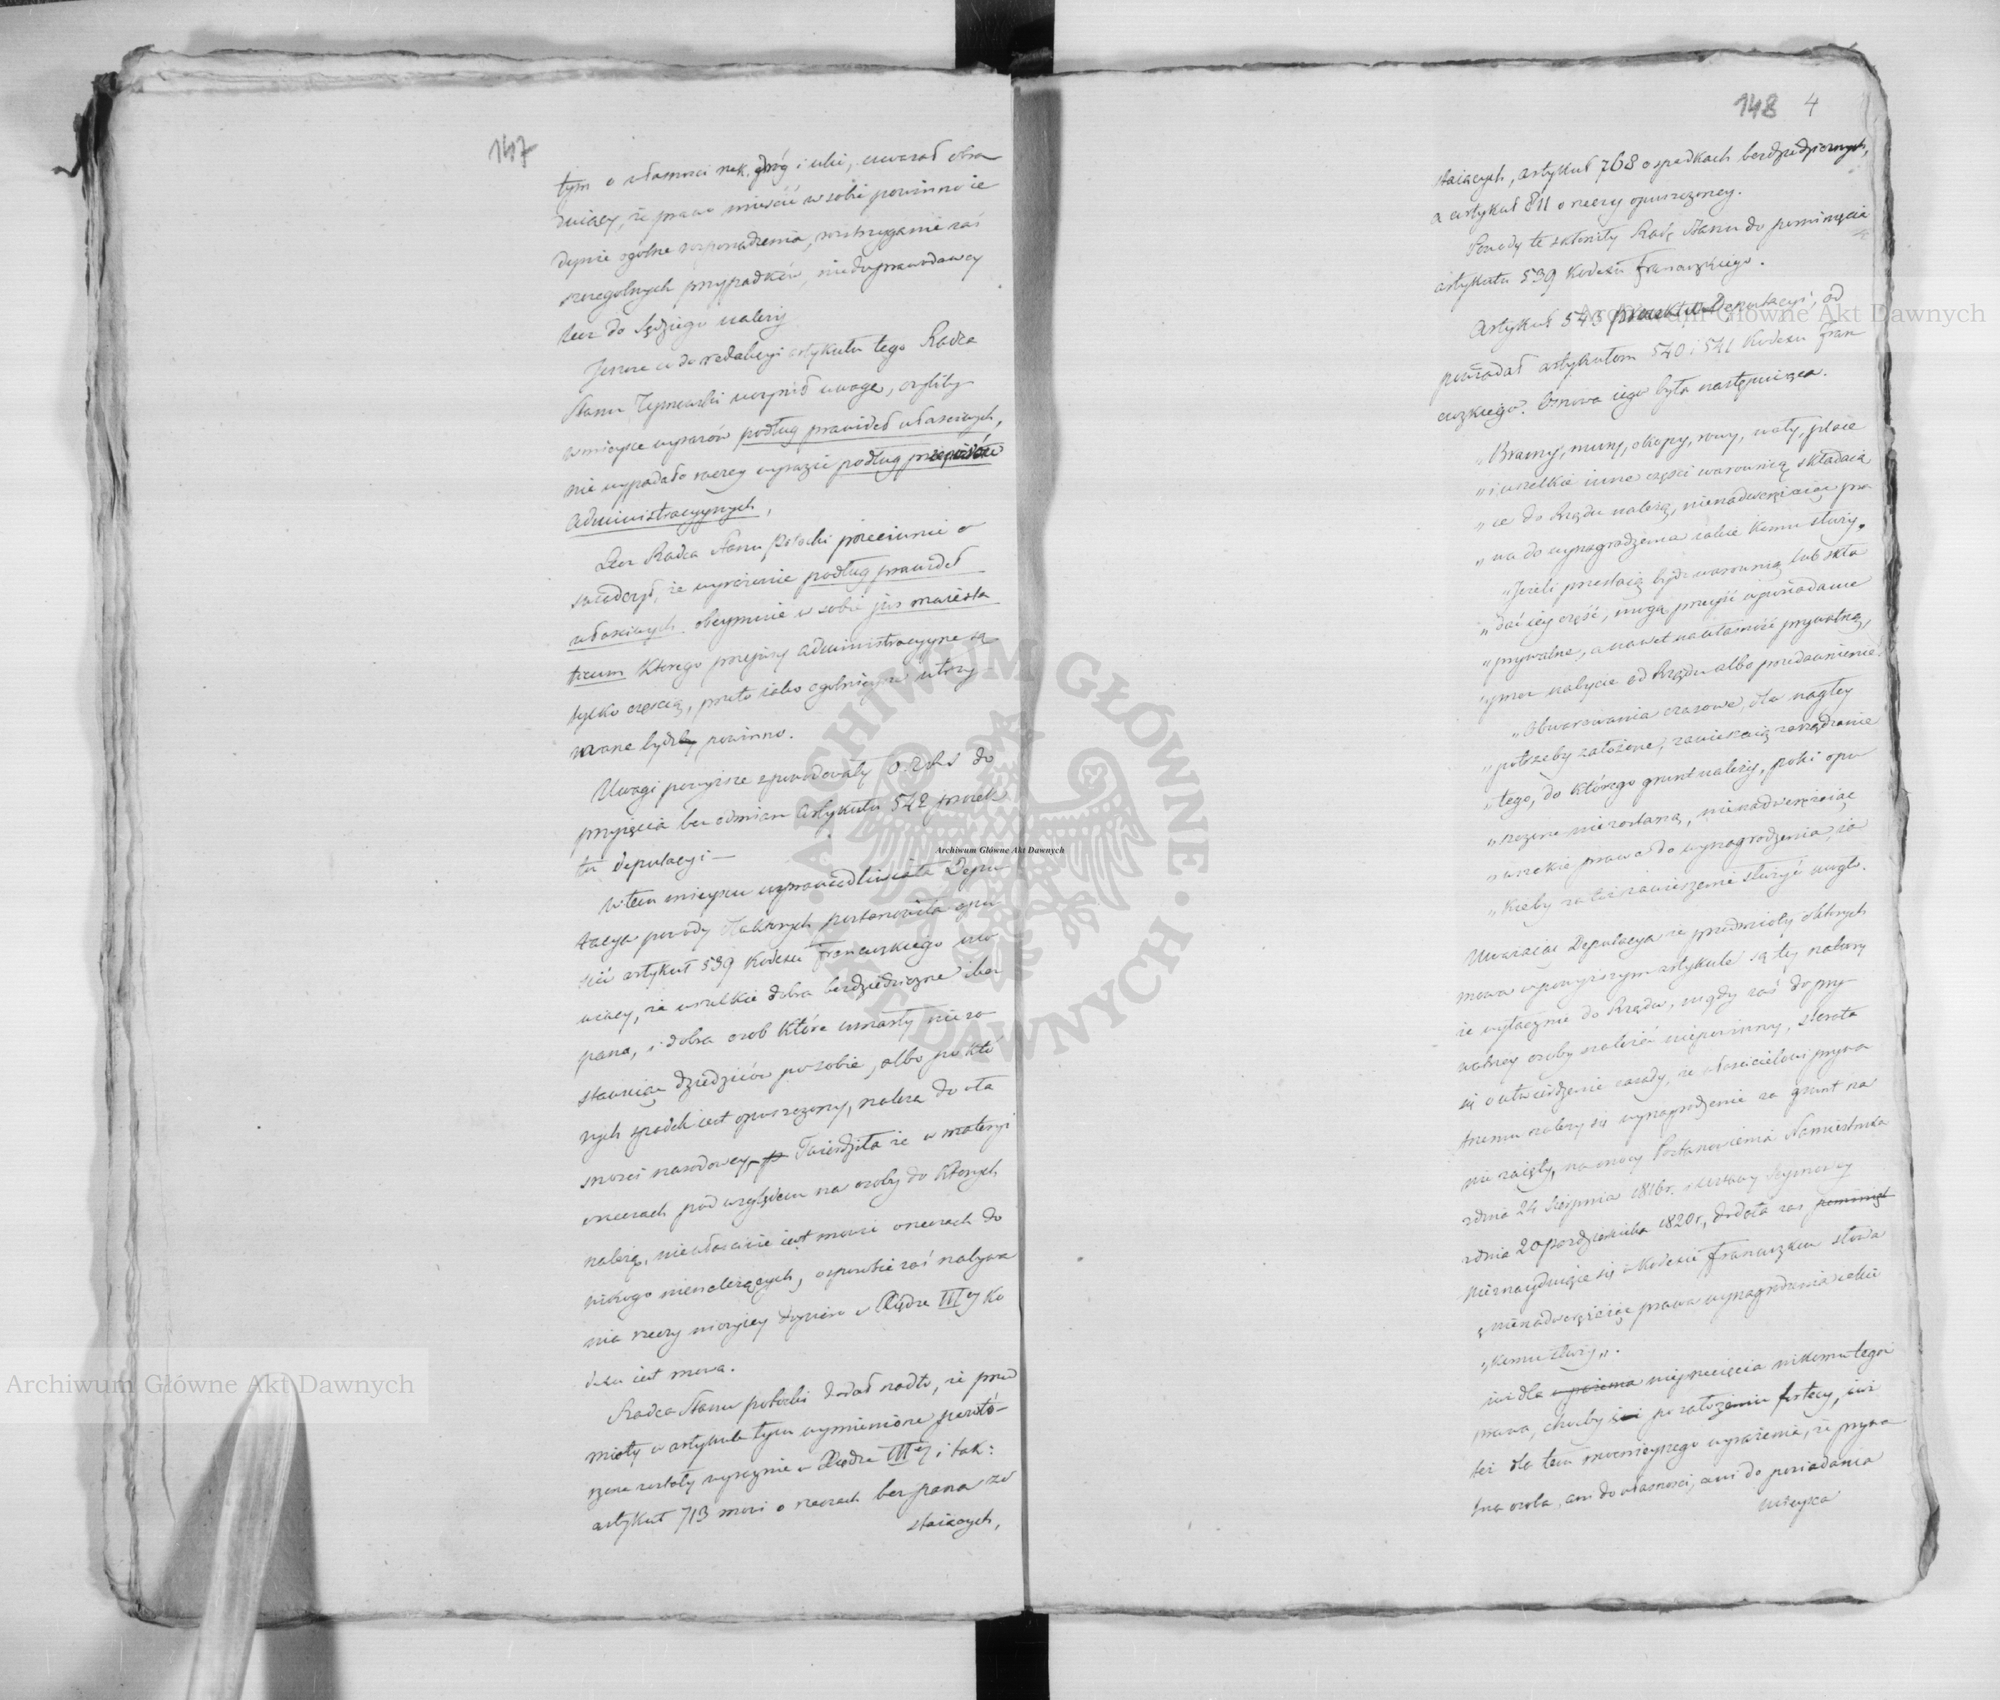 147
tym o własności rzek, dróg i ulic, uważał obra
duiący, że prawo mieścić w sobie powinno ie
dynie ogólne rozporządzenia, rozstrzyganie zaś
szczególnych przypadków, nie do prawodawcy
lecz do Sędziego należy.
Jeszcze co do redakcyi artykułu tego Radca
Stanu uczynił uwagę, czyliby
w mieysce wyrazów podług prawideł właściwych,
nie wypadało rzeczy wyrazić podług przepisów
administracyynych,
Lecz Radca Stanu Potocki przeciwnie o
świadczył, że wyrażenie podług prawideł
właściwych obeymuie w sobie jus maiesta
ticum którego przepisy administracyyne są
tylko częścią, przeto iako ogólnieysze utrzy-
mane bydź powinno.
Uwagi powyższe spowodowały do
przyięcia bez odmian Artykułu 542 proiek
tu Deputacyi —
W tem mieyscu usprawiedliwiała Depu
tacya powody dla których postanowiła opu
ścić artykuł 539 Kodexu Francuzkiego mó
wiący, że wszelkie dobra bezdziedziczne i bez
pana, i dobra osób które umarły nie zo
stawuiąc dziedziców po sobie, albo po któ
rych spadek iest opuszczony, należą do wła
sności narodowey. Twierdziła że w materyi
o rzeczach pod względem na osoby do których
należą, niewłaściwie iest mówić o rzeczach do
nikogo nienależących, o sposobie zaś nabywa
nia rzeczy niczyiey dopiero w Xiędze III ey Ko
dexu iest mowa.
Radca Stanu Potocki dodał nadto, że przed
mioty w artykule tym wymienione powtó-
rzone zostały wyraźnie w Xiędze III ey i tak:
artykuł 713 mówi o rzeczach bez pana zo
staiących,
148 4
staiących, artykuł 768 o spadkach bezdziedzicznych,
a artykuł 811 o rzeczy opuszczoney.
Powody te skłoniły Radę Stanu do pominięcia
artykułu 539 Kodexu Francuzkiego.
Artykuł 543 proiektu Deputacyi, od
powiadał artykułom 540 i 541 Kodexu Fran
cuzkiego. Osnowa iego była następuiąca.
„Bramy, mury, okopy, rowy, wały, place
„i wszelkie inne części warownią składaią
„ce do Rządu należą, nienadwerężaiąc pra
„wa do wynagrodzenia iakie komu służy.
„Jeżeli przestaią bydź warownią lub skła
„dać iey część, mogą przeyść w posiadanie
„prywatne, a nawet na własność prywatną,
„przez nabycie od Rządu albo przedawnienie.
„Obwarowania czasowe, dla nagłey
„potrzeby założone, zawieszaią zarządzanie
„tego, do którego grunt należy, póki opu
„szczone niezostaną, nienadwerężaiąc
„wszelkie prawa do wynagrodzenia, ia
„kieby za to zawieszenie służyć mogło.
Uważaiąc Deputacya że przedmioty o których
mowa w powyższym artykule są tey natury
że wyłącznie do Rządu, nigdy zaś do pry
watney osoby należeć niepowinny, starała
się o utwierdzenie zasady, że właścicielowi prywa
tnemu należy się wynagrodzenie za grunt na
nie zaięty, na mocy Postanowienia Namiestnika
z dnia 24 Sierpnia 1816 r. i Ustawy Seymowey
z dnia 20 Października 1820 r., dodała zaś pominęł
nieznayduiące się w Kodexie Francuzkim słowa
„nienadwerężaiąc prawa wynagrodzenia iakie
„komu służy„.
iuż dla nieprzecięcia nikomu tego
prawa, choćby po założeniu fortecy, iuż
też dla tem mocnieyszego wyrażenia, że prywa
tna osoba, ani do własności, ani do posiadania
mieysca
Archiwum Główne Akt Dawnych
Archiwum Główne Akt Dawnych
Archiwum Główne Akt Dawnych
ARCHIWUM GŁÓWNE AKT DAWNYCH